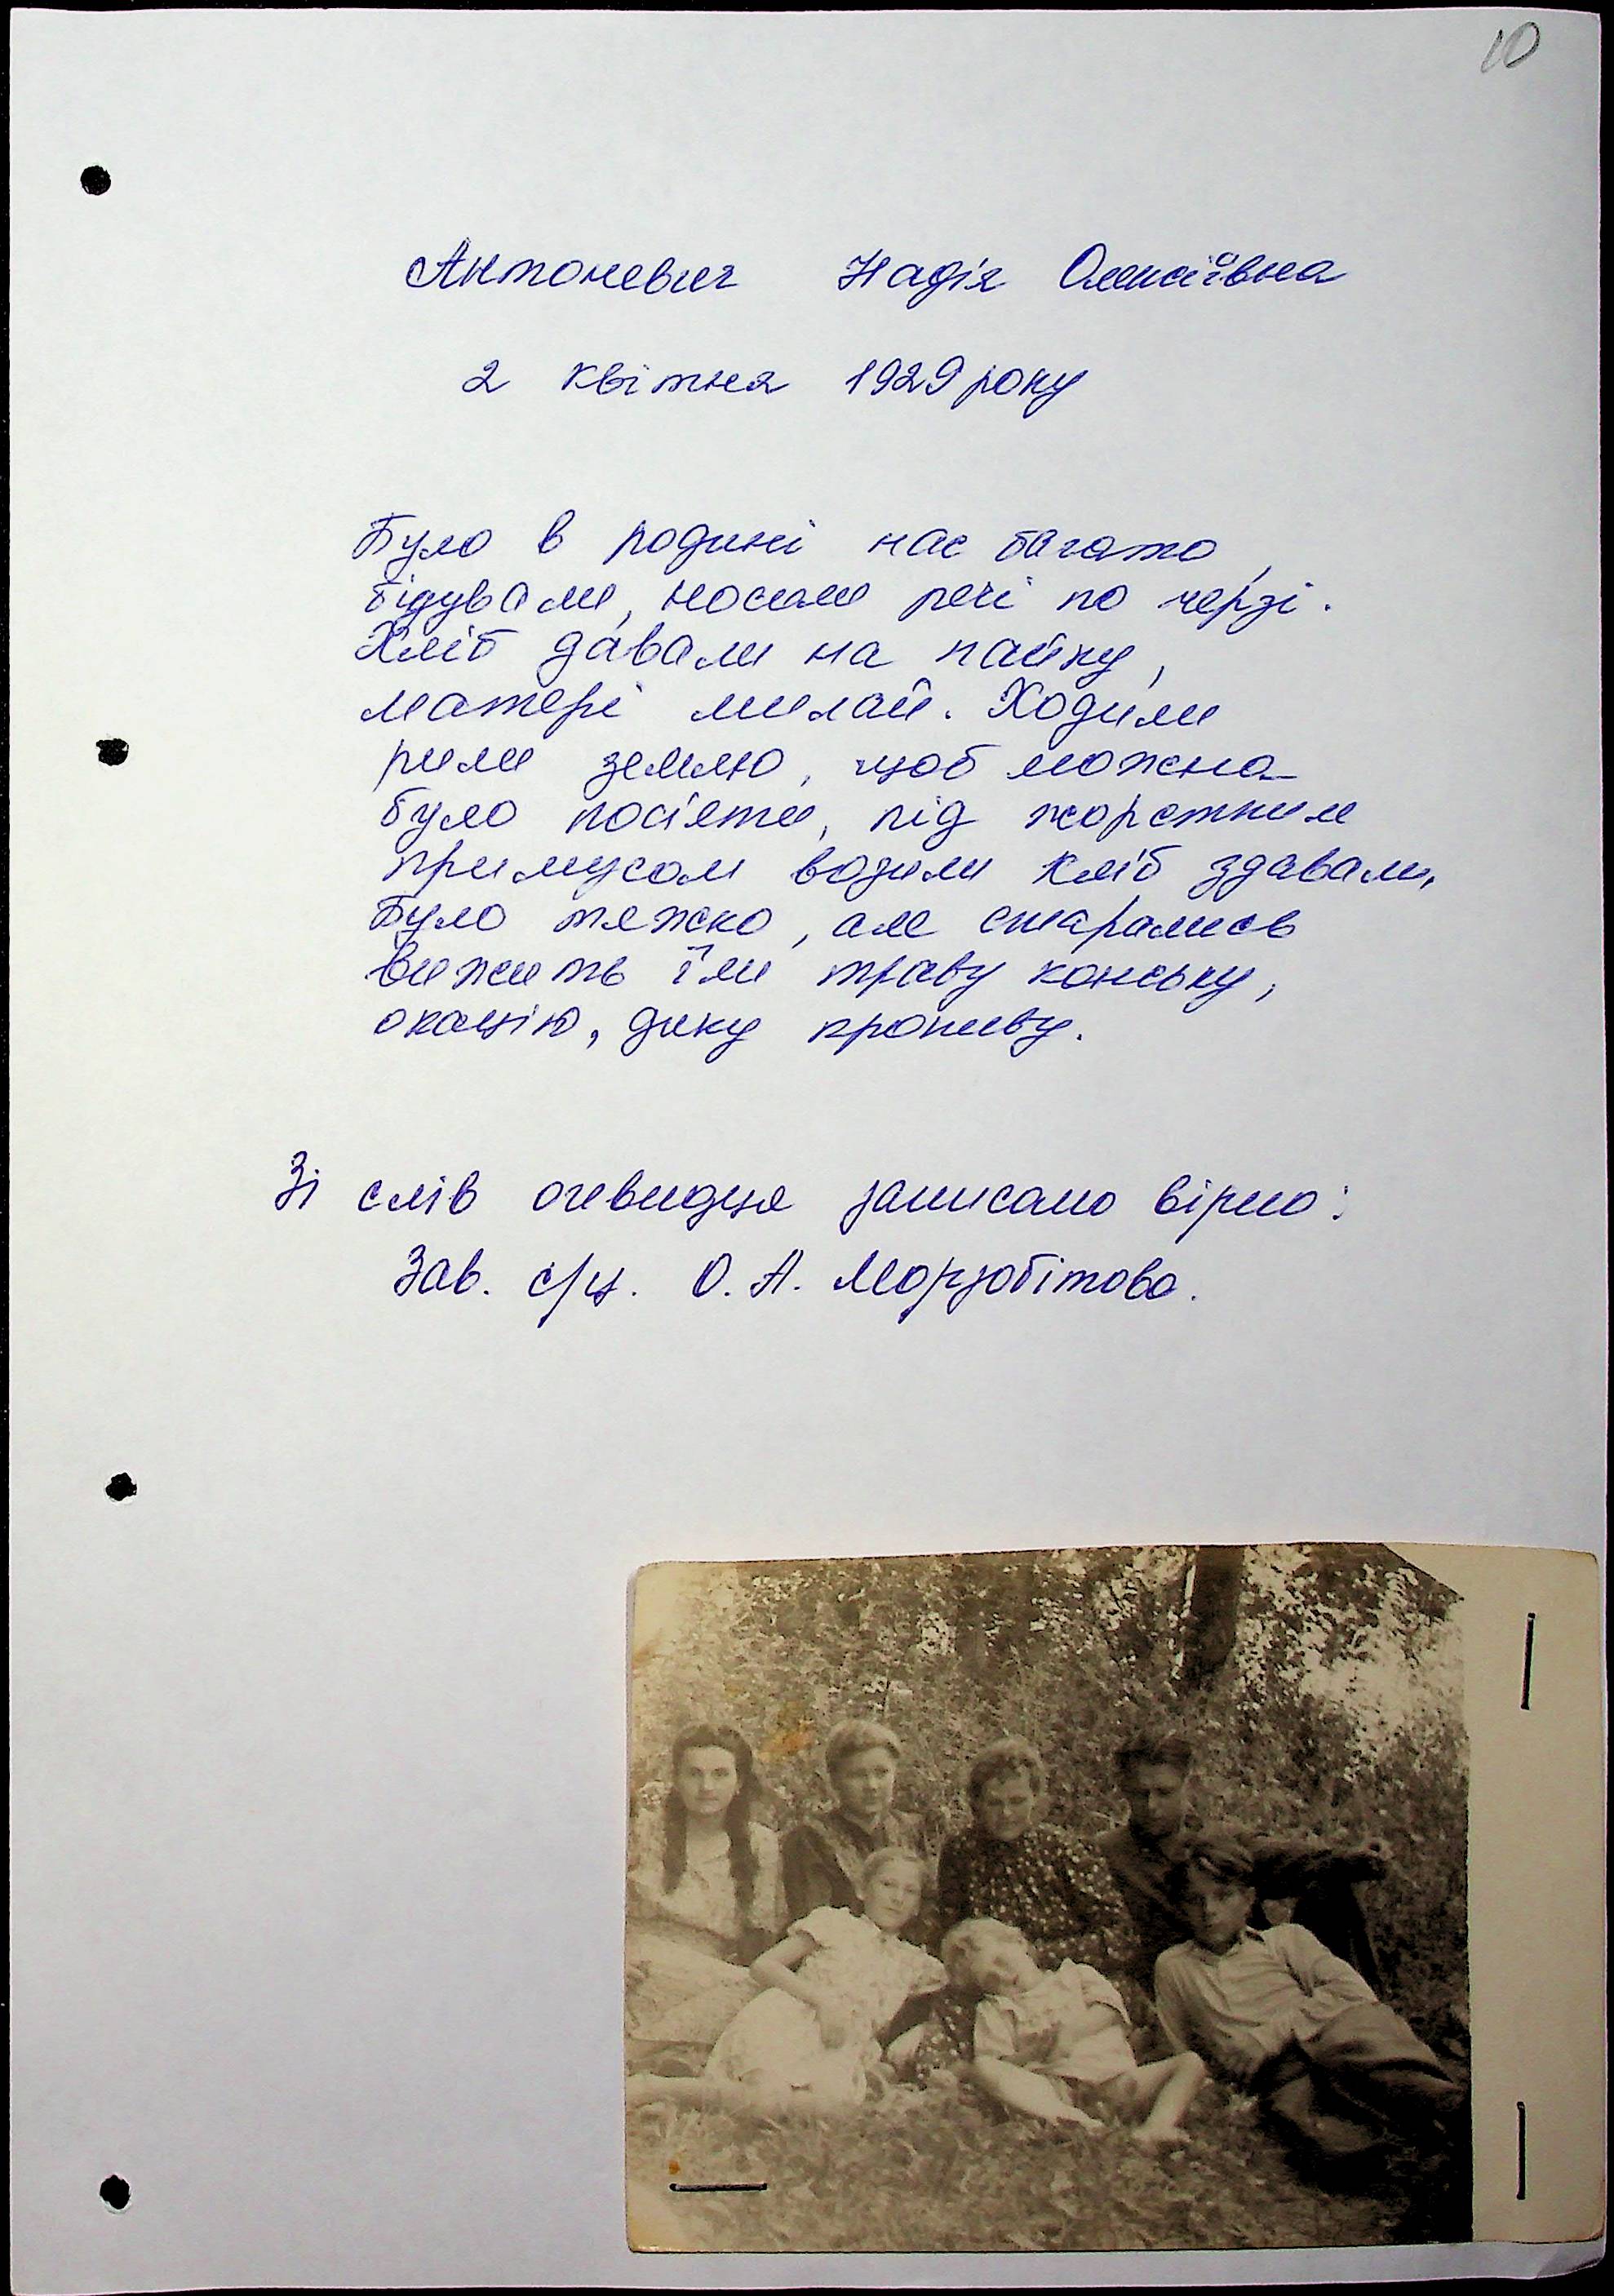 10
Антоневич Надія Олексіївна
2 квітня 1929 року
Було в родині нас багато,
бідували, носили речі по черзі.
Хліб давали на пайку,
матері милай. Ходили
рили землю, щоб можна
було посіяти, під жорстким
примусом возили хліб здавали,
було тяжко, але старались
вижить їли траву конську,
окацію, дику кропиву.
Зі слів очевидця записано вірно:
Зав. с/ц. О. А. Морзобітова.